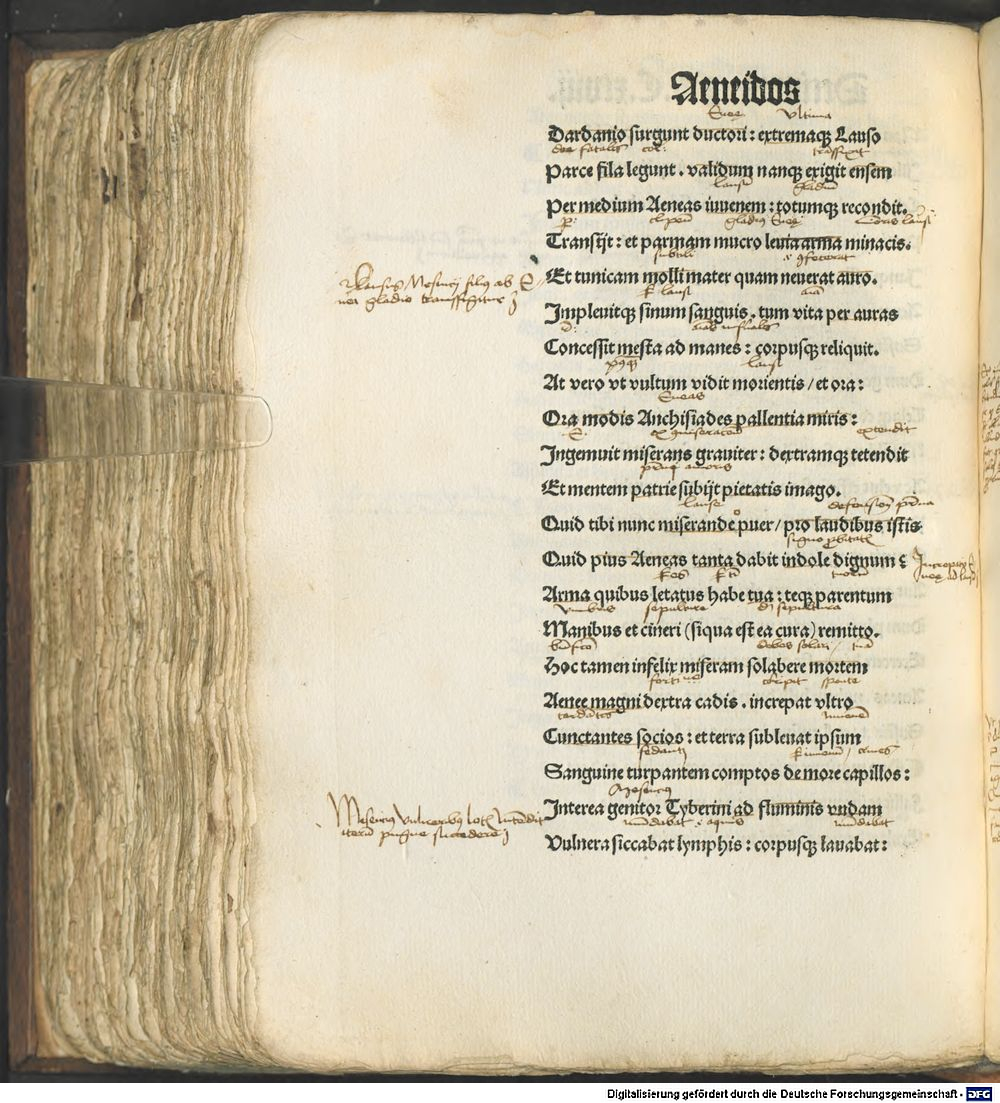 Aeneidos
Eneę vltima
Dardanio surgunt ductori : extremaqꝫ Lauso
dee fatales
Parce fila legunt . validum nanqꝫ exigit ensem
lausum gladium
Per medium Aeneas iuuenem : totumqꝫ recondit.
clipeum gladius Eneę
Transijt : et parmam mucro leuia arma minacis.
subtili
Et tunicam molli mater quam neuerat auro.
Impleuitqꝫ sinum sanguis . tum vita per auras
Concessit mesta ad manes : corpusqꝫ reliquit.
At vero vt vultum vidit morientis / et ora :
Eneas
Ora modis Anchisiades pallentia miris :
extendit
Ingemuit miserans grauiter : dextramqꝫ tetendit
Et mentem patrie subijt pietatis imago.
lause
Quid tibi nunc miserande puer / pro laudibus istis
Quid pius Aeneas tanta dabit indole dignum ?
Arma quibus letatus habe tua : teqꝫ parentum
sepulture
Manibus et cineri (siqua est ea cura) remitto.
Hoc tamen infelix miseram solabere mortem
sponte
Aenee magni dextra cadis . increpat vltro
Cunctantes socios : et terra subleuat ipsum
Sanguine turpantem comptos de more capillos :
Mesencius
Interea genitor Tyberini ad fluminis vndam
Vulnera siccabat lymphis : corpusqꝫ lauabat :
Lausus Mesencij filius ab E
nea gladio transfigitur
Mesencius vulneribus lotis intendit
iterum pugne succedere
Digitalisierung gefördert durch die Deutsche Forschungsgemeinschaft - DFG